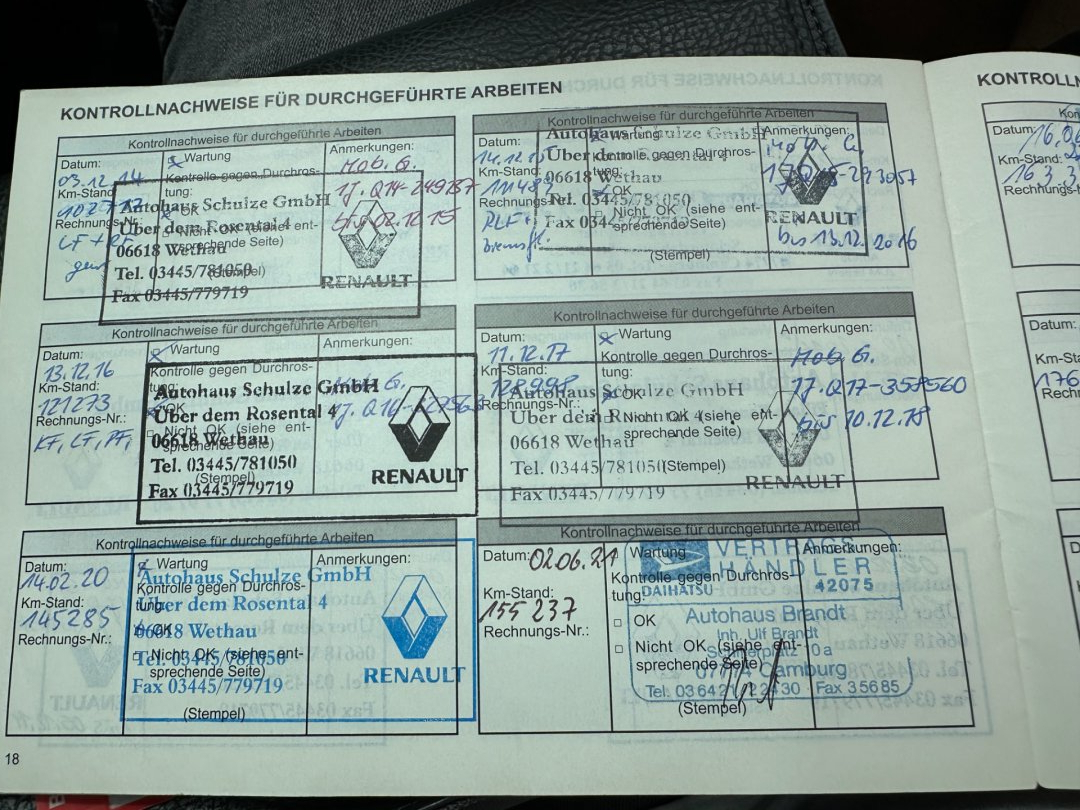 KONTROLLNACHWEISE FÜR DURCHGEFÜHRTE ARBEITEN
Kontrollnachweise für durchgeführte Arbeiten
Datum:
03.12.14
Km-Stand:
Rechnungs-Nr.:
LF +
Wartung
Kontrolle gegen Durchros-
tung:
OK
Nicht OK (siehe ent-
sprechende Seite)
(Stempel)
Anmerkungen:
Mob. G.
Autohaus Schulze GmbH
Über dem Rosental 4
06618 Wethau
Tel. 03445/781050
Fax 03445/779719
RENAULT
Kontrollnachweise für durchgeführte Arbeiten
Datum:
14.12.15
Km-Stand:
Rechnungs-Nr.:
Wartung
Kontrolle gegen Durchros-
tung:
OK
Nicht OK (siehe ent-
sprechende Seite)
(Stempel)
Anmerkungen:
Mob. G.
bis 13.12.2016
Autohaus Schulze GmbH
Über dem
06618 Wethau
Tel. 03445/781050
Fax
RENAULT
Kontrollnachweise für durchgeführte Arbeiten
Datum:
13.12.16
Km-Stand:
121273
Rechnungs-Nr.:
KF, LF, PF,
Wartung
Kontrolle gegen Durchros-
tung:
OK
Nicht OK (siehe ent-
sprechende Seite)
(Stempel)
Anmerkungen:
Mob. G.
Autohaus Schulze GmbH
Über dem Rosental 4
06618 Wethau
Tel. 03445/781050
Fax 03445/779719
RENAULT
Kontrollnachweise für durchgeführte Arbeiten
Datum:
11.12.17
Km-Stand:
128998
Rechnungs-Nr.:
Wartung
Kontrolle gegen Durchros-
tung:
OK
Nicht OK (siehe ent-
sprechende Seite)
(Stempel)
Anmerkungen:
Mob. G.
1J. Q17-358560
bis 10.12.18
Autohaus Schulze GmbH
Über dem
06618 Wethau
Tel. 03445/781050
Fax 03445/779719
RENAULT
Kontrollnachweise für durchgeführte Arbeiten
Datum:
14.02.20
Km-Stand:
145285
Rechnungs-Nr.:
Wartung
Kontrolle gegen Durchros-
tung:
OK
Nicht OK (siehe ent-
sprechende Seite)
(Stempel)
Anmerkungen:
Autohaus Schulze GmbH
Über dem Rosental 4
06618 Wethau
Tel. 03445/781050
Fax 03445/779719
RENAULT
Kontrollnachweise für durchgeführte Arbeiten
Datum:
02.06.21
Km-Stand:
155 237
Rechnungs-Nr.:
Wartung
Kontrolle gegen Durchros-
tung:
OK
Nicht OK (siehe ent-
sprechende Seite)
(Stempel)
Anmerkungen:
VERTRAGS
HÄNDLER
DAIHATSU
42075
Autohaus Brandt
Inh. Ulf Brandt
Camburg
Fax 35685
18
Datum:
Km-Stand:
Datum: